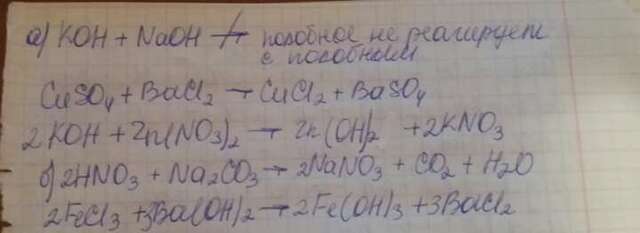 а) KOH + NaOH ↛ подобное не реагирует
с подобным
CuSO₄ + BaCl₂ → CuCl₂ + BaSO₄
2KOH + Zn(NO₃)₂ → Zn(OH)₂ + 2KNO₃
б) 2HNO₃ + Na₂CO₃ → 2NaNO₃ + CO₂ + H₂O
2FeCl₃ + 3Ba(OH)₂ → 2Fe(OH)₃ + 3BaCl₂